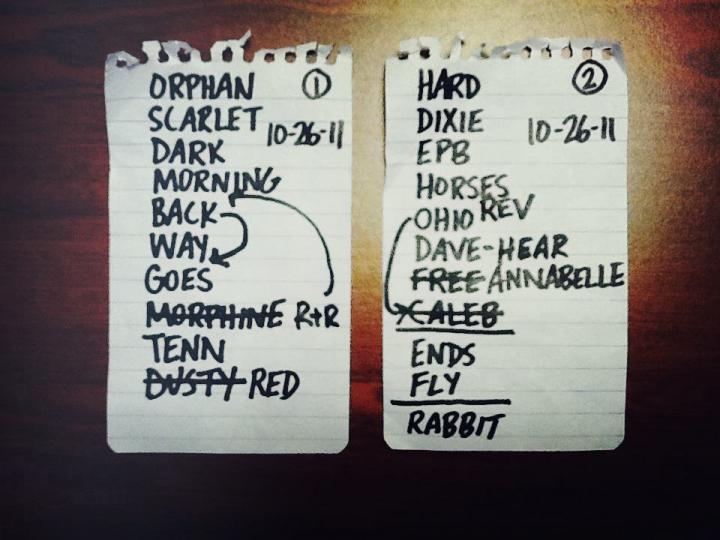 ORPHAN ①
SCARLET
10-26-11
DARK
MORNING
BACK
WAY
GOES
MORPHINE R+R
TENN
DUSTY RED
HARD ②
DIXIE
10-26-11
EPB
HORSES
OHIO REV
DAVE-HEAR
FREE ANNABELLE
XCALEB
ENDS
FLY
RABBIT